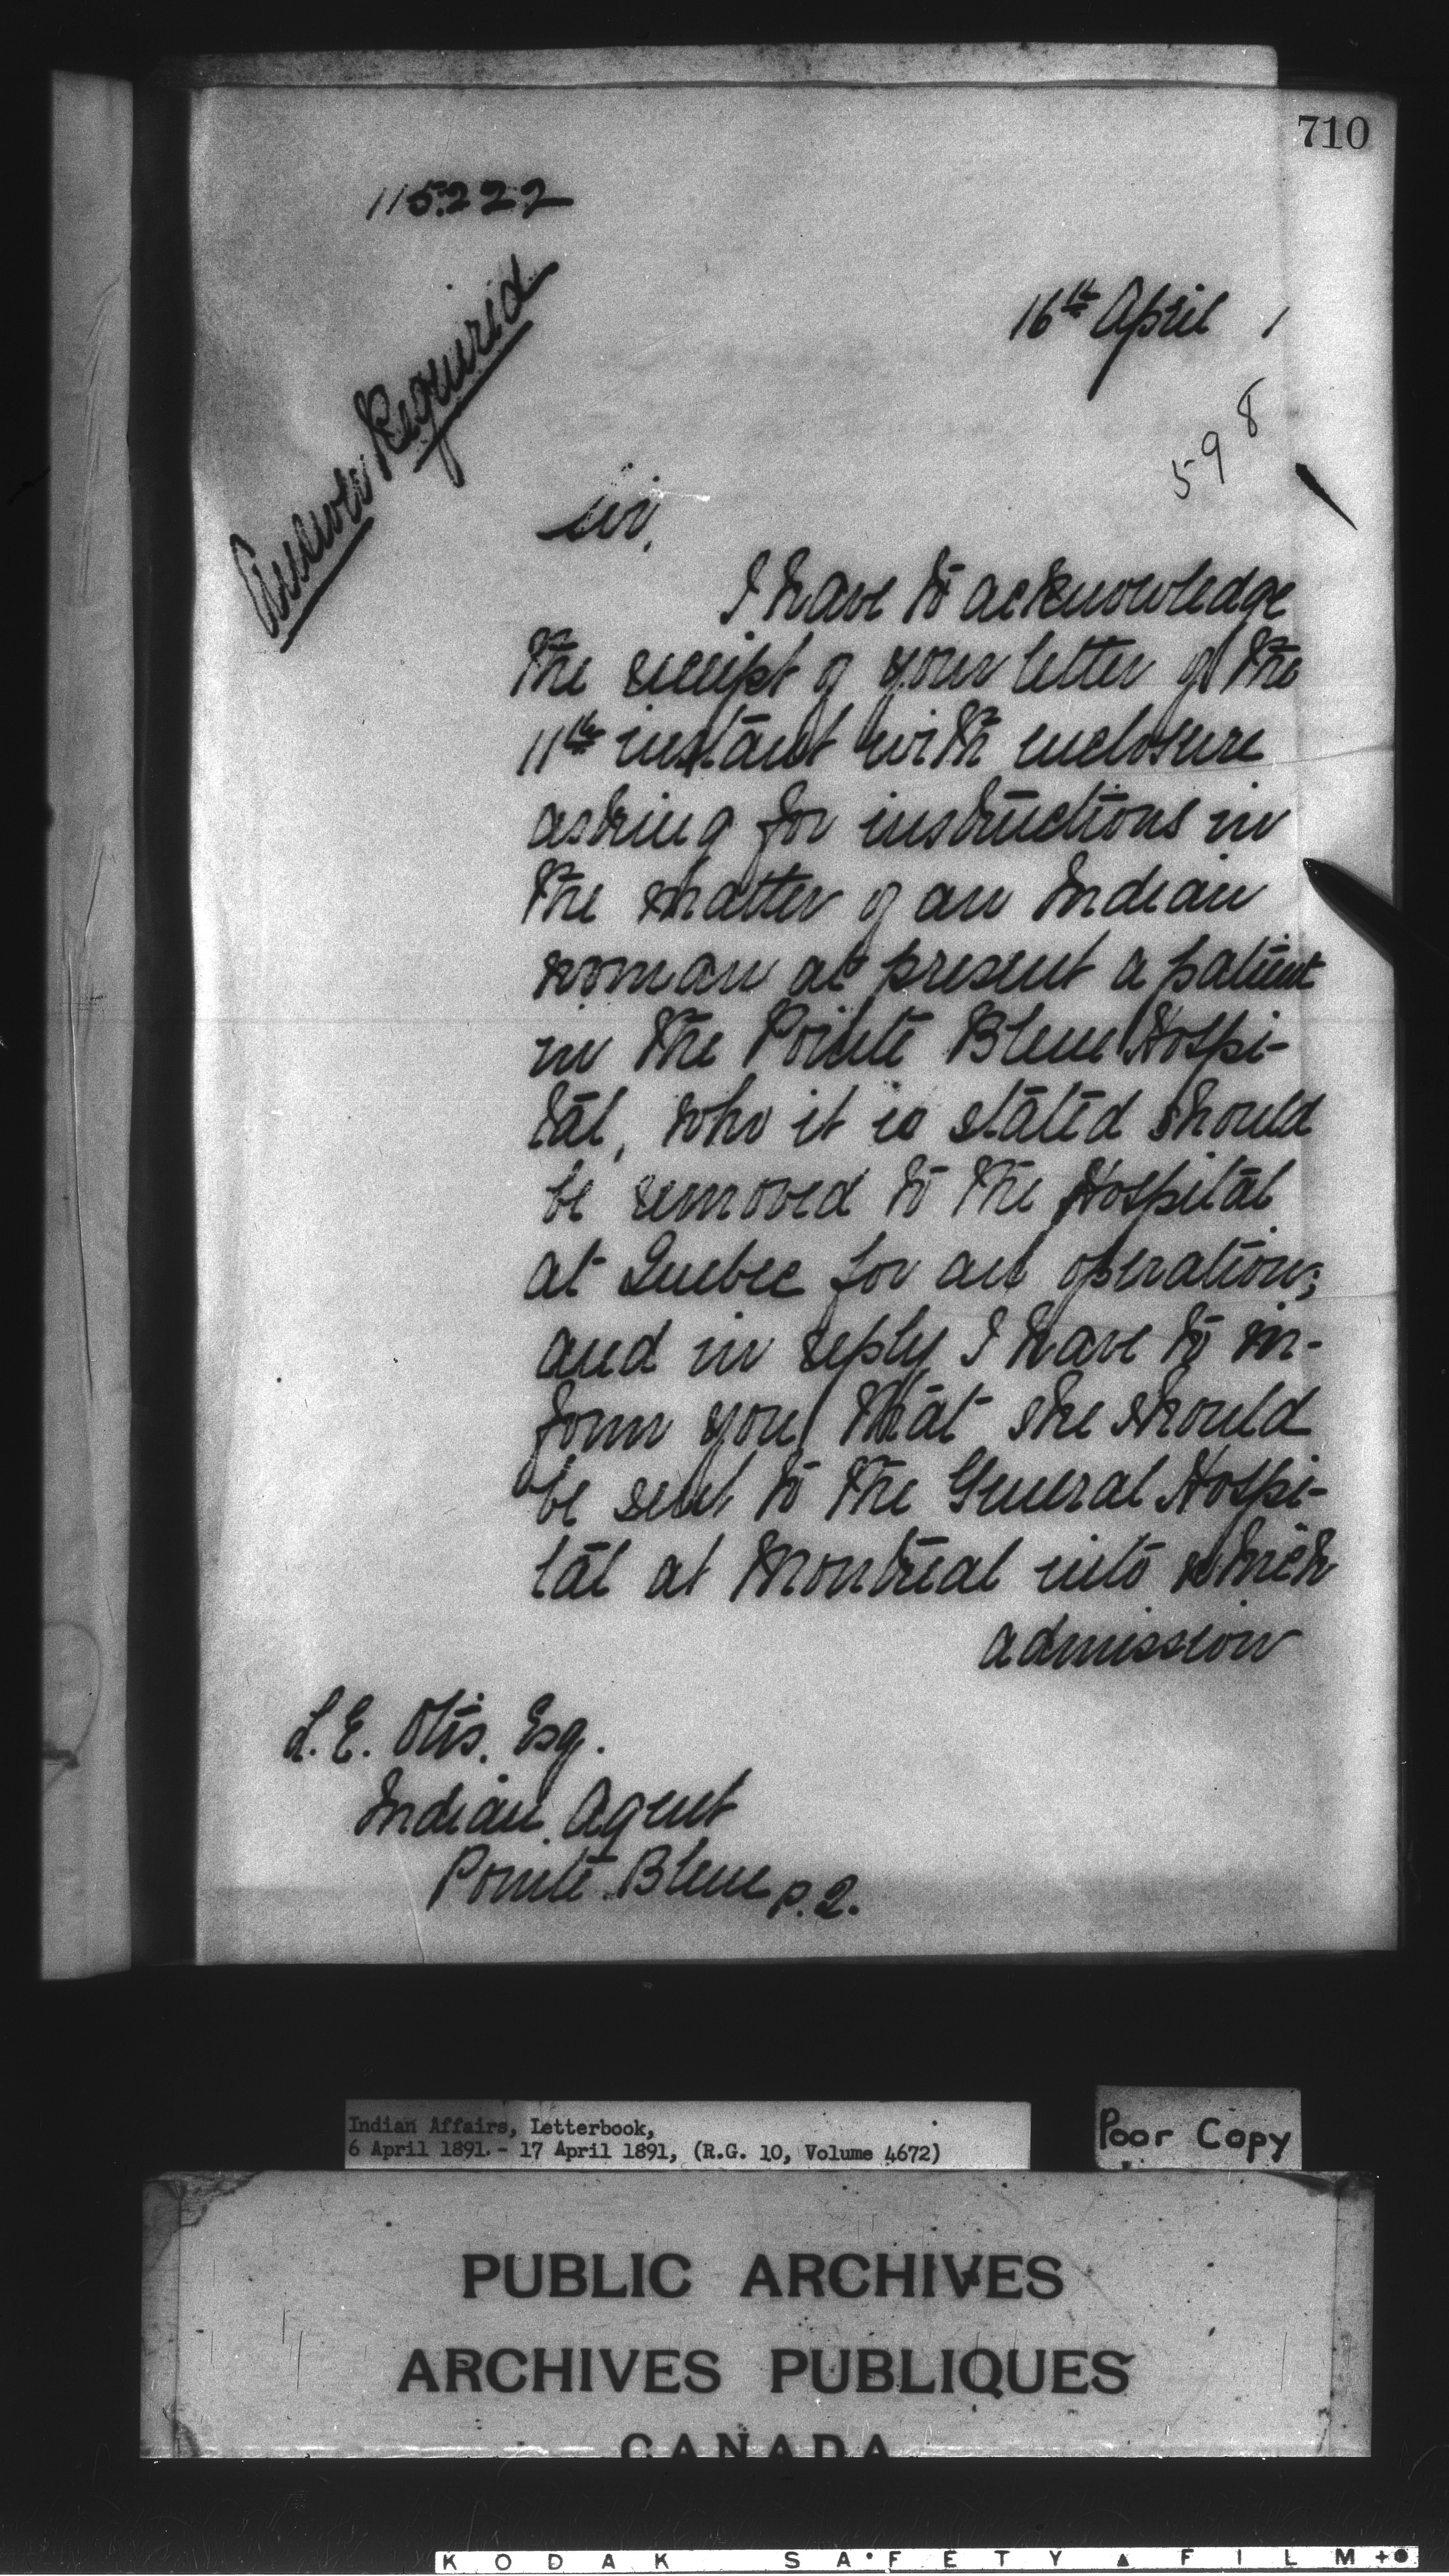 710
115222
16th April 1
Answer Required
598
Sir,
I have to acknowledge
the receipt of your letter of the
11th instant with enclosure
asking for instructions in
the matter of an Indian
woman at present a patient
in the Pointe Bleue Hospi-
tal, who it is stated should
be removed to the Hospital
at Quebec for an operation;
and in reply I have to in-
form you that she should
be sent to the General Hospi-
tal at Montreal into which
admission
L. E. Otis. Esq.
Indian Agent
Pointe Bleue P.Q.
Indian Affairs, Letterbook,
6 April 1891.- 17 April 1891, (R.G. 10, Volume 4672)
Poor Copy
PUBLIC ARCHIVES
ARCHIVES PUBLIQUES
CANADA
KODAK SAFETY FILM